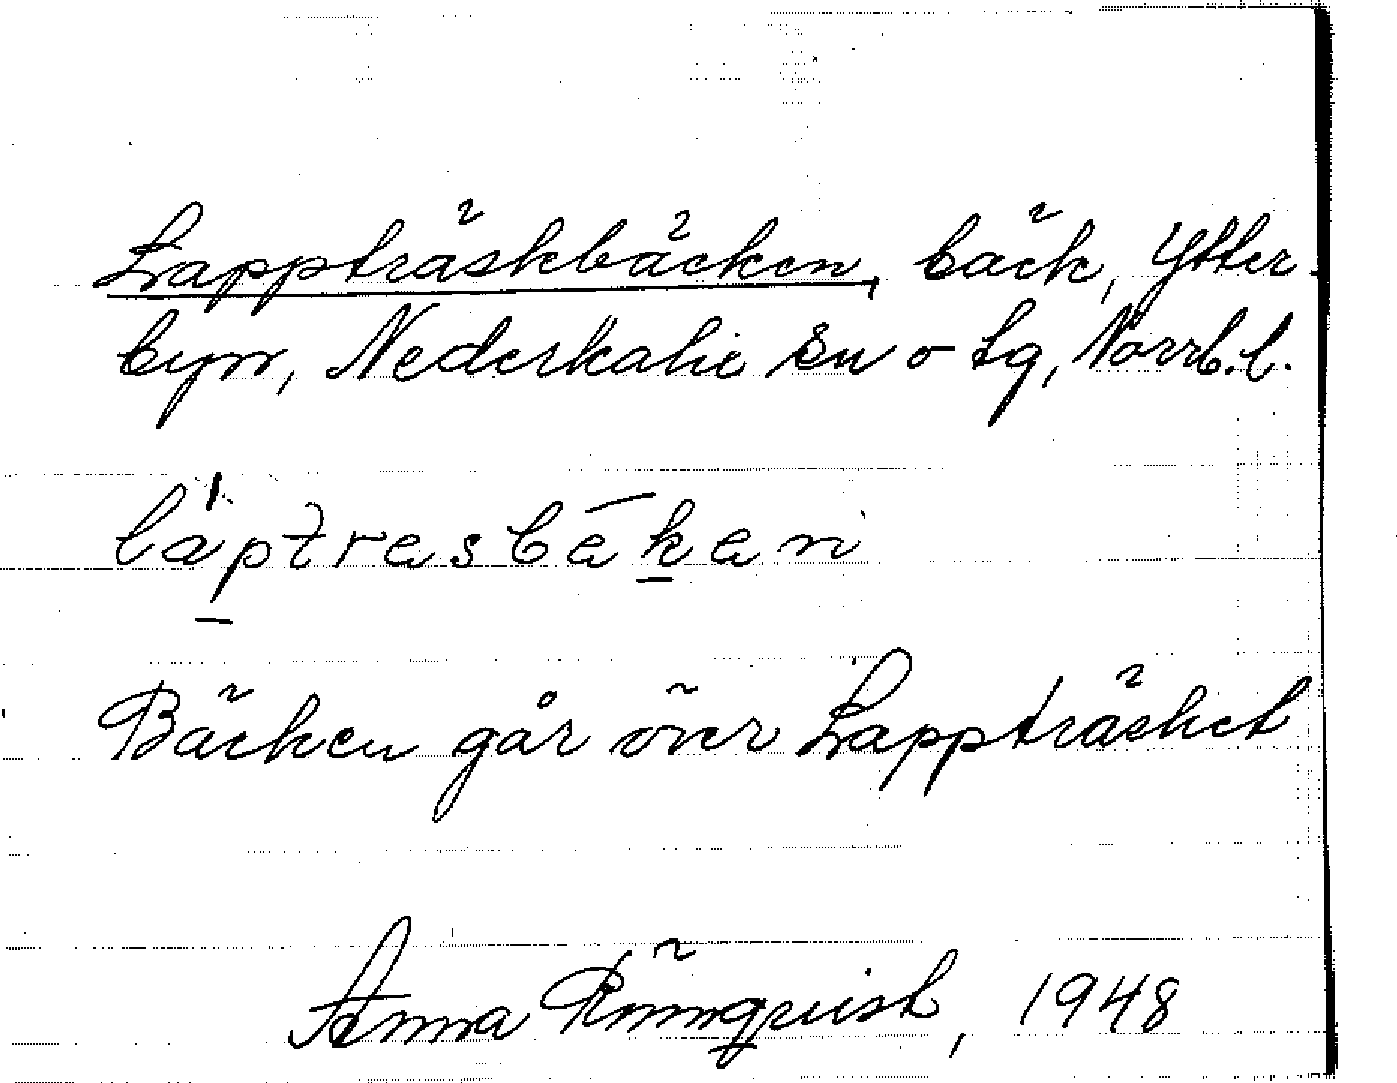 Lappträskbäcken, bäck, Ytter-
byn, Nederkalix sn o tg, Norrb.l.
låptresbēken
Bäcken går över Lappträsket
Anna Rönnqvist, 1948